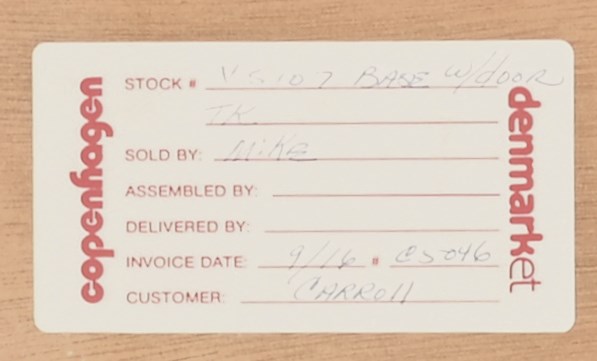 copenhagen
STOCK # VS107 BASE W/dOOR
TK
SOLD BY: MIKE
ASSEMBLED BY:
DELIVERED BY:
INVOICE DATE: 9/16 # C5046
CUSTOMER: CARROll
denmarket